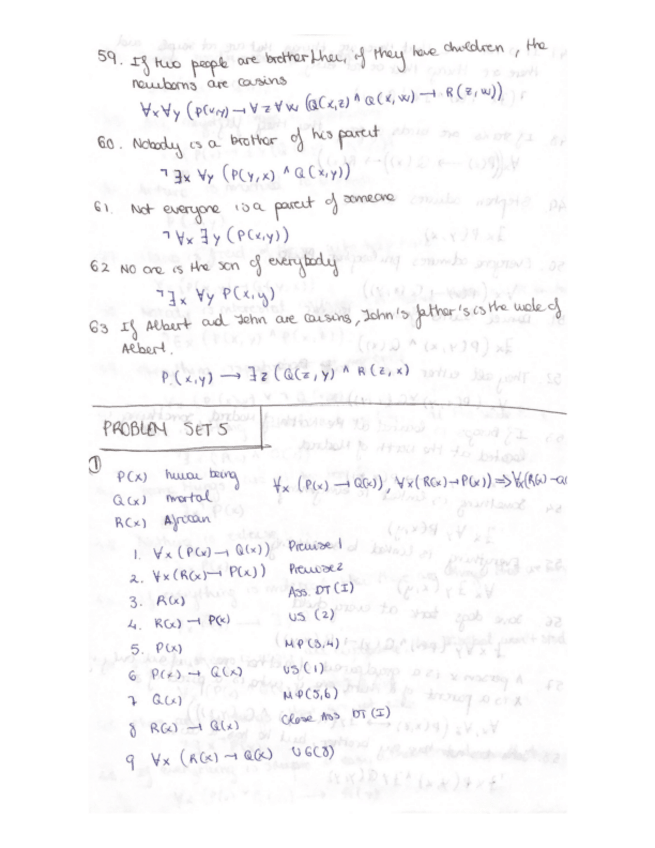 59. If two people are brother then, if they have children, the
newborns are cousins
∀x∀y (P(x,y) → ∀z∀w (Q(x,z) ^ Q(x,w) → R(z,w))
60. Nobody is a brother of his parent
¬∃x ∀y (P(y,x) ^ Q(x,y))
61. Not everyone is a parent of someone
¬∀x ∃y (P(x,y))
62 No one is the son of everybody
¬∃x ∀y P(x,y)
63 If Albert and John are cousins, John's father's is the uncle of
Albert.
P(x,y) → ∃z (Q(z,y) ^ R(z,x)
PROBLEM SET 5
①
P(x) human being ∀x (P(x) → Q(x)), ∀x(R(x) → P(x)) ⇒ ∀x(R(x) → Q(
Q(x) mortal
R(x) African
1. ∀x (P(x) → Q(x)) Premise 1
2. ∀x (R(x) → P(x)) Premise 2
3. R(x) Ass. DT (I)
4. R(x) → P(x) US (2)
5. P(x) MP (3,4)
6 P(x) → Q(x) US (1)
7 Q(x) MP (5,6)
8 R(x) → Q(x) Close Ass DT (I)
9 ∀x (R(x) → Q(x) UG(8)